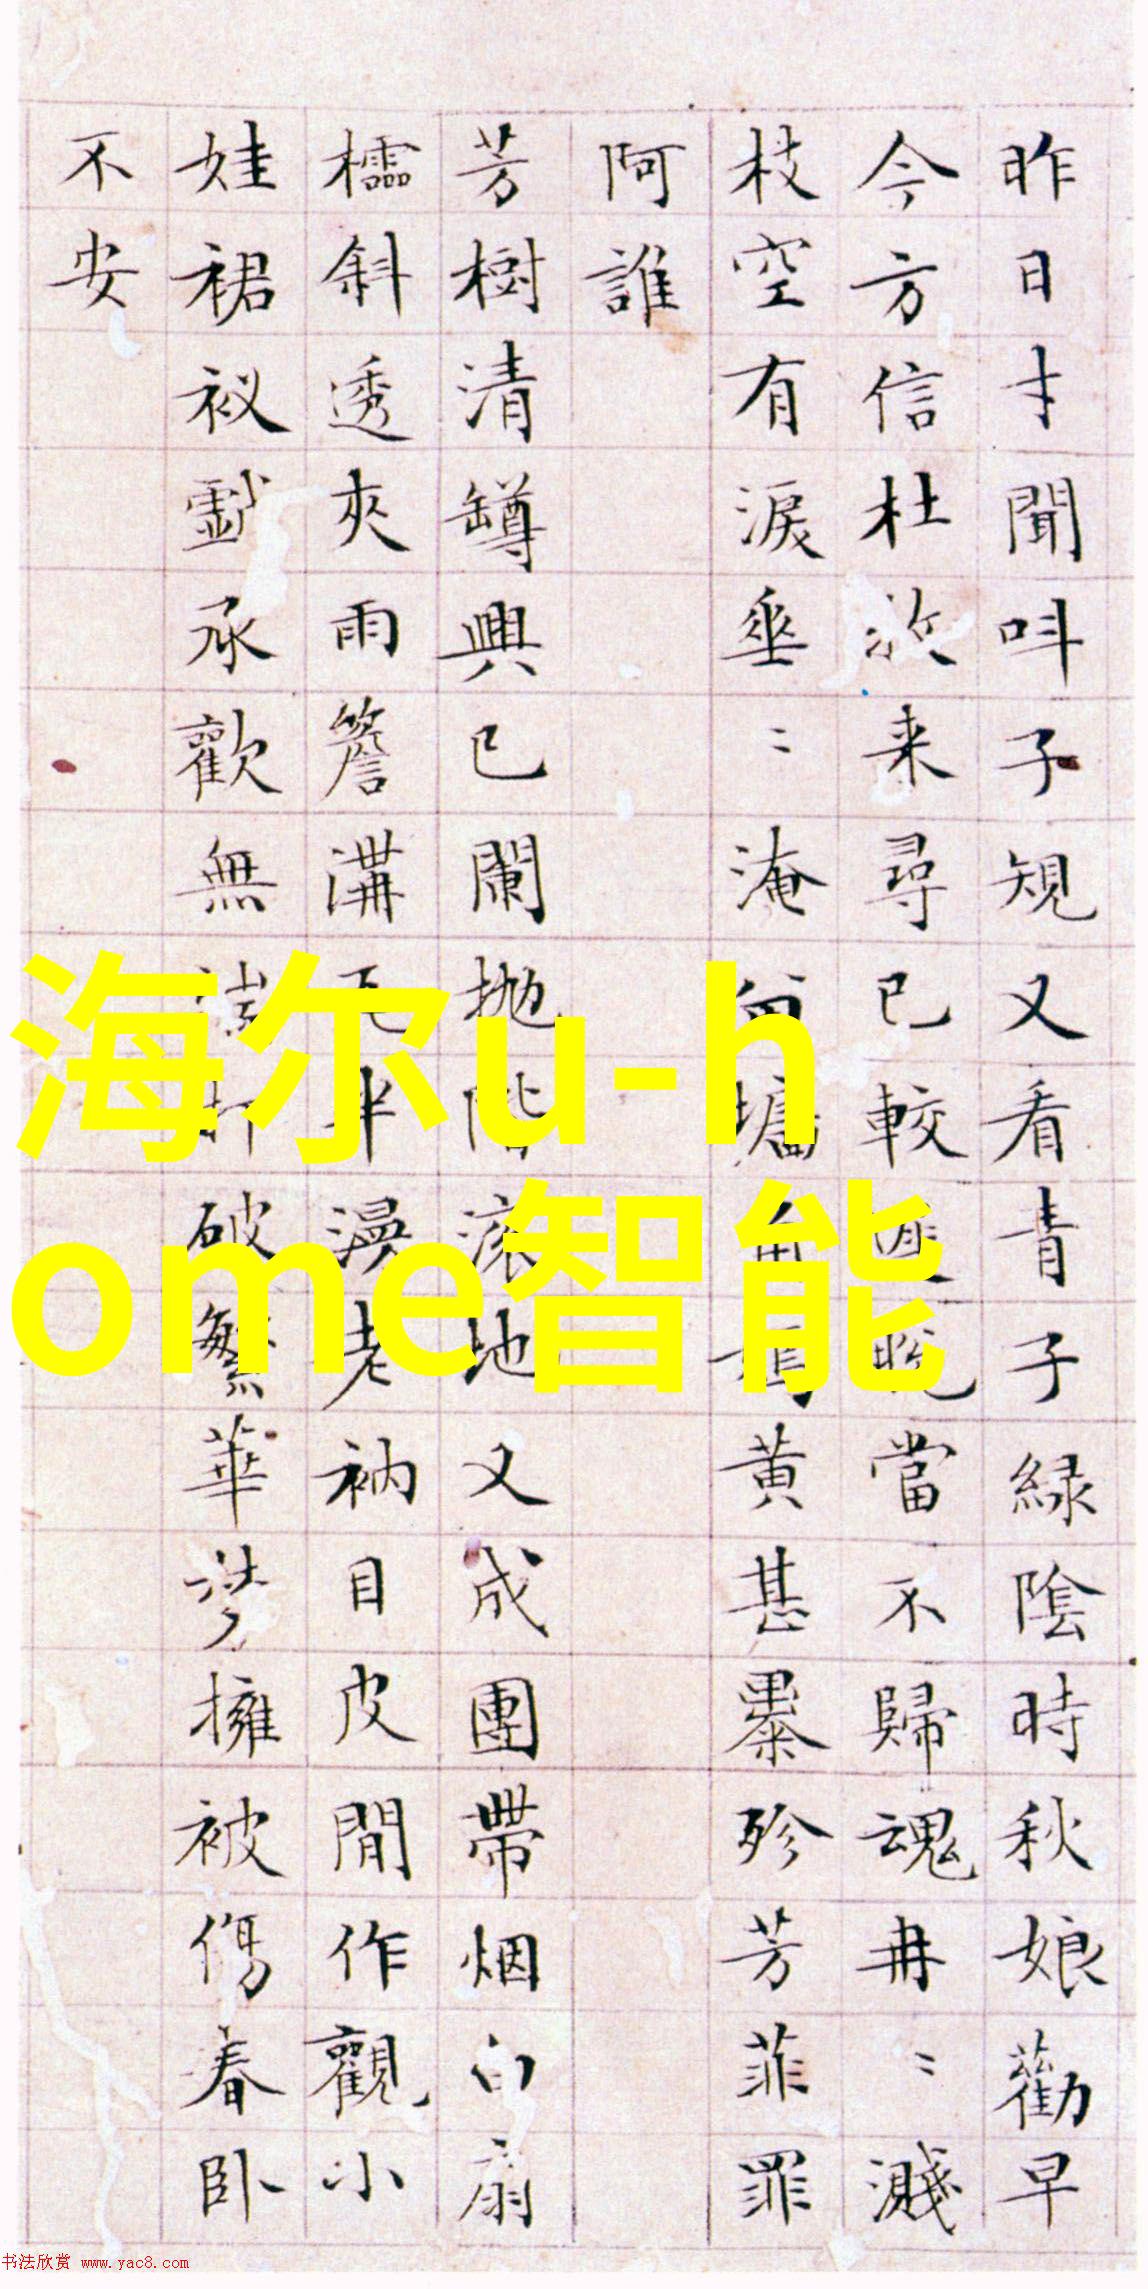 昨日才聞呌子規又看青子緑陰時秋娘勸早
今方信杜 来尋已較遲 當不歸魂冉〻濺
枝空有淚垂〻淹 墻角 黄甚黍殄芳菲罪
阿誰
芳樹清罇興已闌抛階滚地又成團帶烟 扇
櫺斜透夾雨簷溝瓦半漫老衲目皮間作觀小
娃裙衩 承歡無 破繁華夢擁被傷春卧
不安
海尔u-h
ome智能
书法欣赏 www.yac8.com